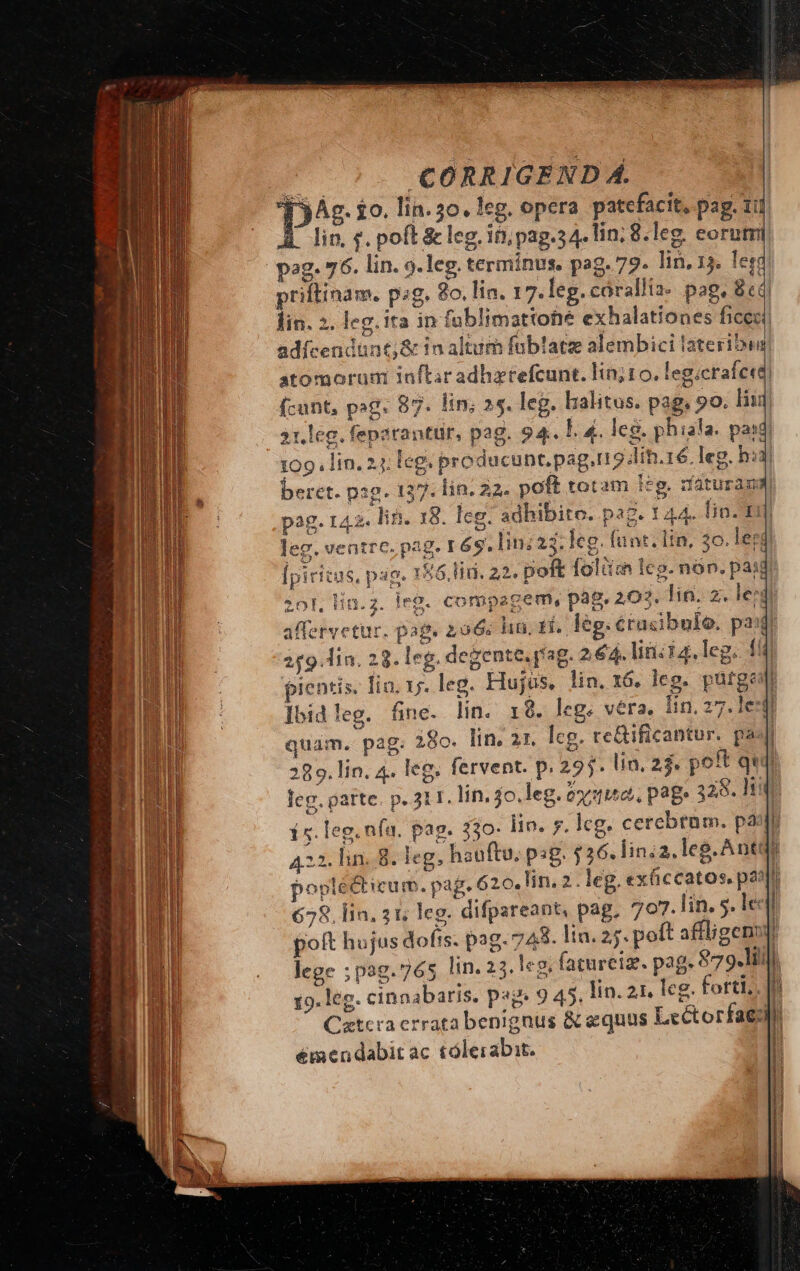 CORRIGENDA.
PAg. 10. lin. 30. leg. opera patefacit. pag. 11
lin. 5. post & leg. in, pag. 34. lin; 8. leg. eorum
pag. 76. lin. 9. leg. terminus. pag. 79. lin. 13. leg
pristinam. pag. 80. lin. 17. leg. corallia. pag. 8
lin. 2. leg. ita in sublimatione exhalationes sicc
adscendunt; & in altum sublatæ alembici lateribus
atomorum instar adhærescunt. lin; 10. leg.
scunt, pag. 87. lin; 25. leg. halitus. pag. 90. lin
21. leg. separantur, pag. 94. l. 4. leg. phiala. pag
109. lin. 23. leg. producunt. pag. 119 lin. 16. leg. ha
beret. pag. 137. lin. 22. post totam leg. naturam
pag. 142. lin. 18. leg. adhibito. pag. 144. lin. 11
leg. ventre. pag. 169. lin; 25; leg. sunt. lin, 30. leg
spiritus, pag. 186, lin. 22. post solùm leg. non. pag
201, lin. 3. leg. compagem, pag. 203. lin. 2. leg
asservetur. pag. 206. lin. 11. leg. crucibulo. pag
259. lin. 28. leg. degente. pag. 264. lin. 14. leg.
pientis. lin. 15. leg. Hujus, lin. 16. leg. purg
Ibid leg. sine. lin. 18. leg. vera. lin. 27. leg
quam. pag. 280. lin. 21. leg. rectificantur. pa
289. lin. 4. leg. fervent. p. 295. lin. 25. post
leg. parte. p. 311. lin. 30. leg. pag. 328. li
15. leg. nsa. pag. 330. lin. 5. leg. cerebrum. pa
422. lin. 8. leg, haustu. pag. 536. lin. 2. leg. Ant
poplecticum. pag. 620. lin. 2. leg. exsiccatos. pa
678. lin. 31. leg. dispareant, pag. 707. lin. 5. leg
post hujus dosis. pag. 748. lin. 25. post affligen
lege; pag. 765 lin. 23. leg. satureiæ. pag. 879. li
19. leg. cinnabaris. pag. 945. lin. 21. leg. forti.
Cætera errata benignus & æquus Lector fac
emendabit ac tolerabit.